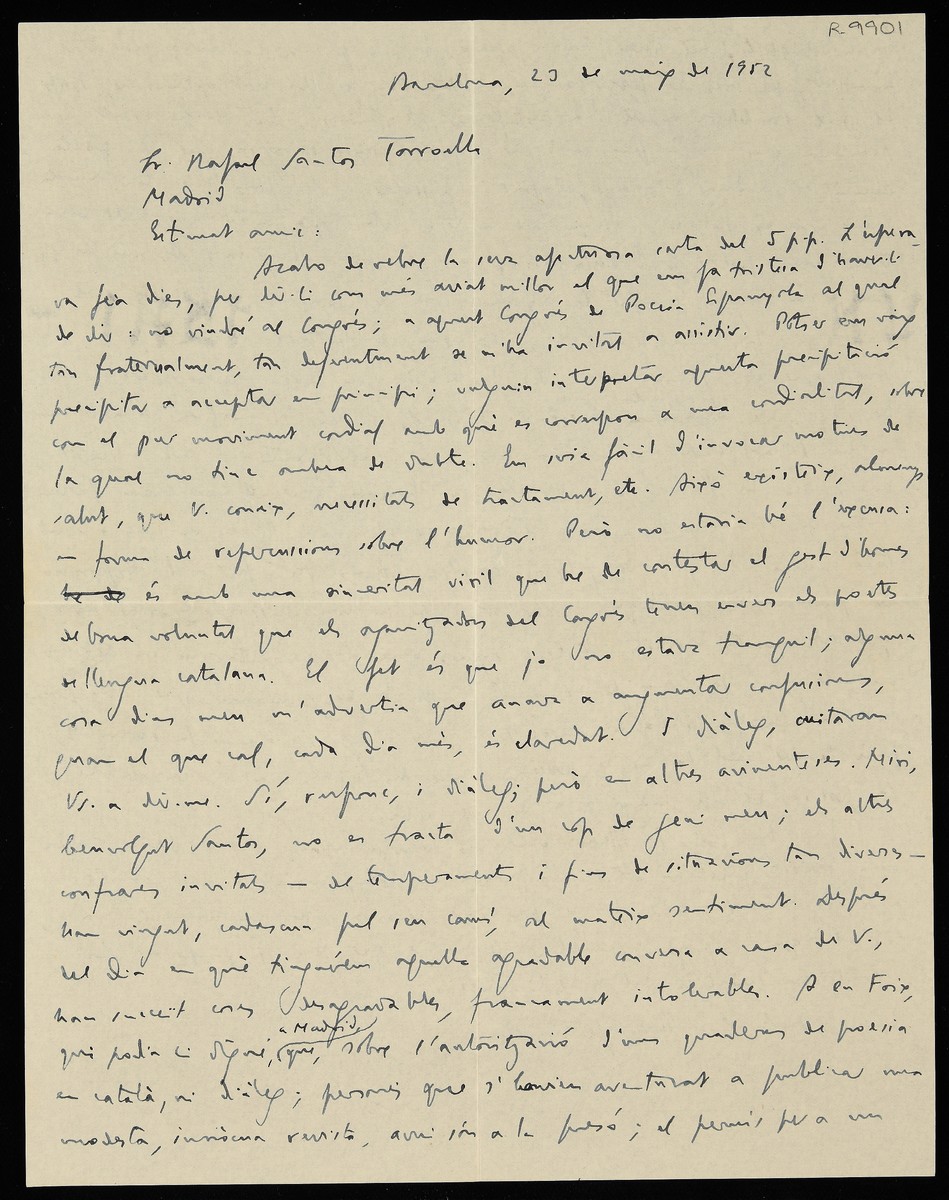 R-9901
Barcelona, 23 de maig de 1952
Sr. Rafael Santos Torroella
Madrid
Estimat amic:
Acabo de rebre la seva afectuosa carta del 5 p.p. L'espera-
va feia dies, per dir-li com més aviat millor el que em fa tristesa d'haver-li
de dir: no vindré al Congrés; a aquest Congrés de Poesia Espanyola al qual
tan fraternalment, tan deferentment se m'ha invitat a assistir. Potser em vaig
precipitar a acceptar en principi; vulguin interpretar aquesta precipitació
com el pur moviment cordial amb què es correspon a una cordialitat, sobre
la qual no tinc ombra de dubte. Em seria fàcil d'invocar motius de
salut, que V. coneix, necessitats de tractament, etc. Això existeix, almenys
en forma de repercussions sobre l'humor. Però no estaria bé l'excusa:
és amb una sinceritat viril que he de contestar el gest d'homes
de bona voluntat que els organitzadors del Congrés tenen envers els poetes
de llengua catalana. El fet és que jo no estava tranquil; alguna
cosa dins meu m'advertia que anava a augmentar confusions,
quan el que cal, cada dia més, és claredat. I diàleg, cuitaran
Vs. a dir-me. Sí, responc, i diàleg; però en altres avinenteses. Miri,
benvolgut Santos, no es tracta d'un cop de geni meu; els altres
confrares invitats — de temperaments i fins de situacions tan diverses —
han vingut, cadascun pel seu camí, al mateix sentiment. Després
del dia en què tinguérem aquella agradable conversa a casa de V.,
han succeït coses desagradables, francament intolerables. A en Foix,
qui podia li digué, a Madrid, que, sobre l'autorització d'uns quaderns de poesia
en català, ni diàleg; persones que s'havien aventurat a publicar una
modesta, innòcua revista, avui són a la presó; el permís per a un